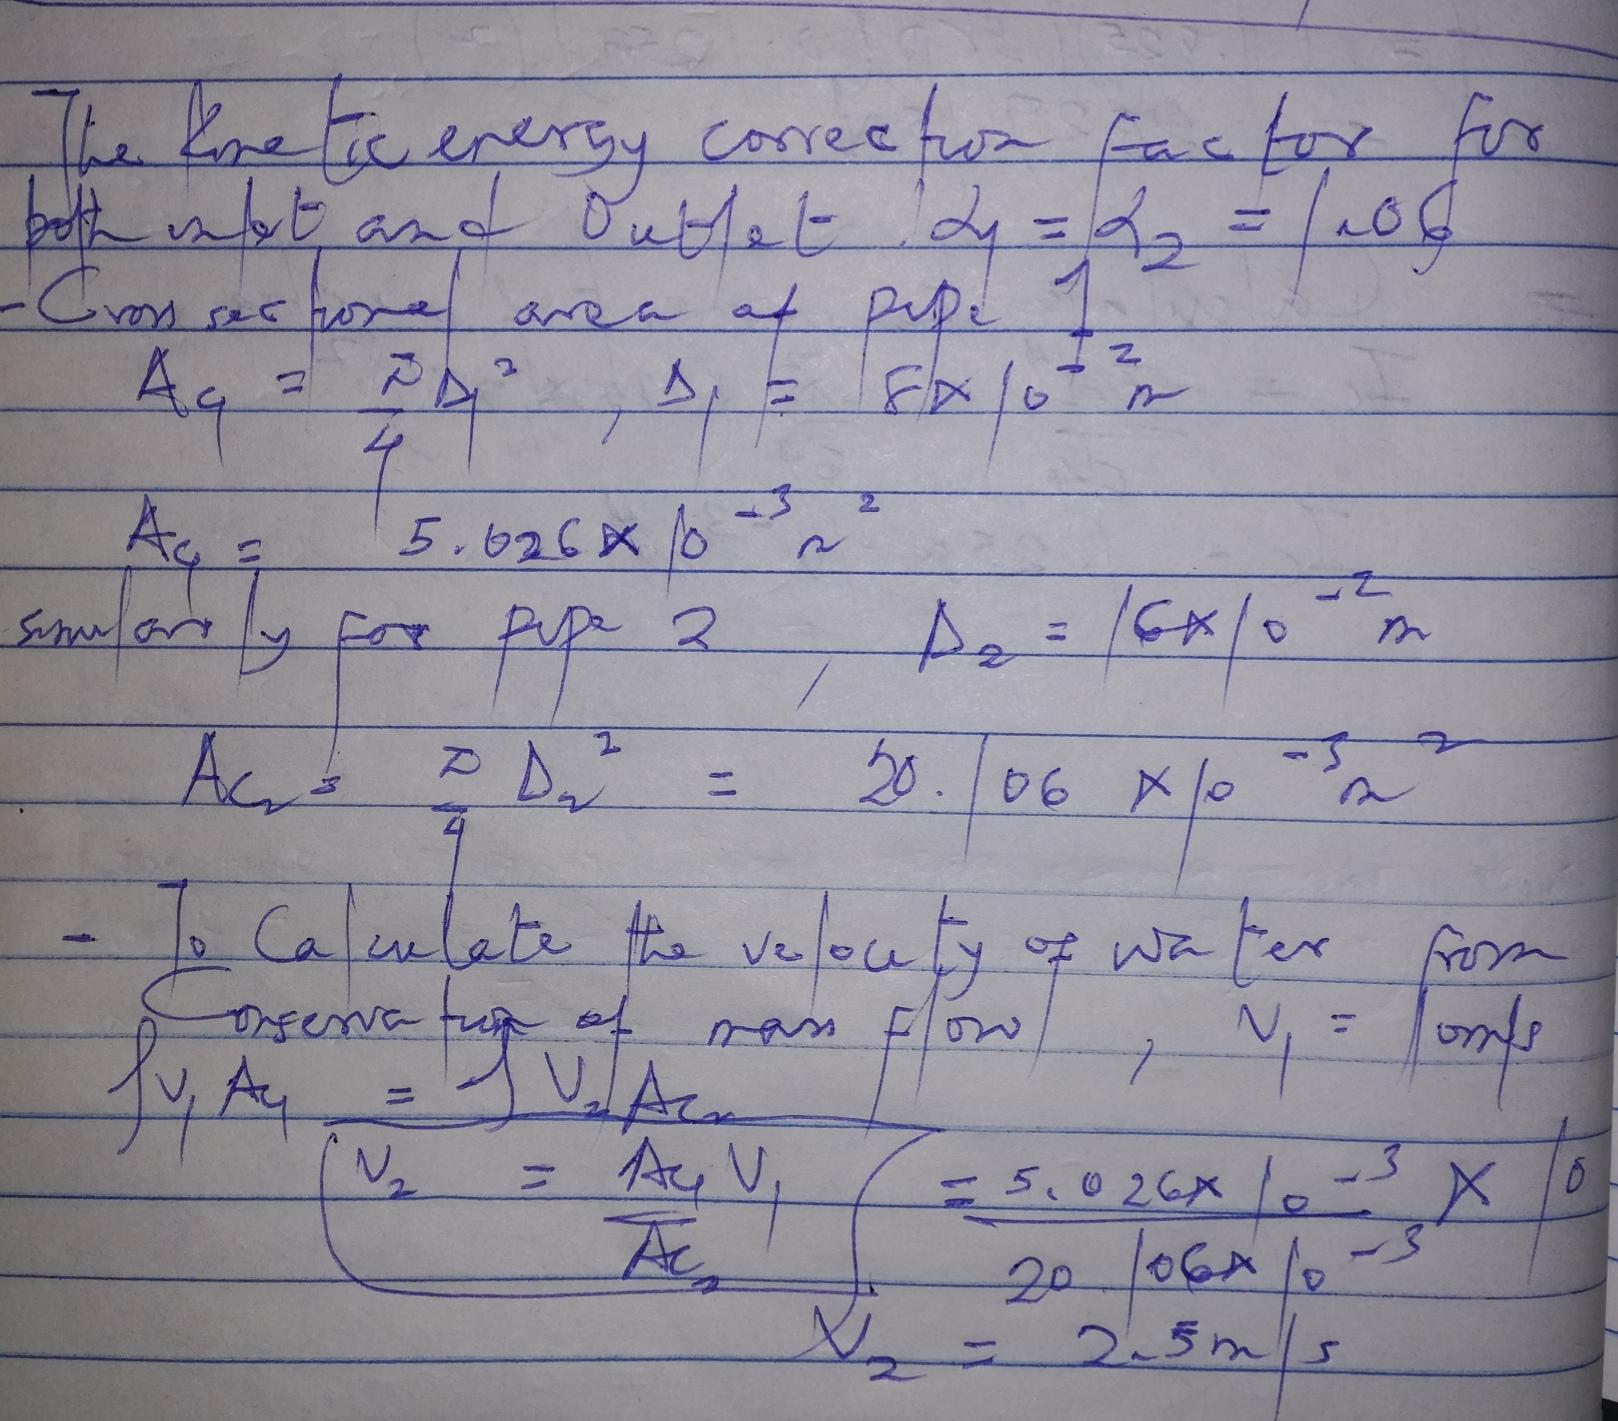 The kinetic energy correction factor for
both inlet and Outlet α₁ = α₂ = 1.06
- Cross sectional area of pipe 1
Ac₁ = π/4 D₁² , D₁ = 8×10⁻² m
Ac₁ = 5.026×10⁻³ m²
similarly for pipe 2 , D₂ = 16×10⁻² m
Ac₂ = π/4 D₂² = 20.106 ×10⁻³ m²
- To Calculate the velocity of water from
Conservation of mass flow , V₁ = 10m/s
ρV₁ Ac₁ = ρV₂ Ac₂
V₂ = Ac₁ V₁ / Ac₂ = 5.026×10⁻³ × 10 / 20.106×10⁻³
V₂ = 2.5 m/s